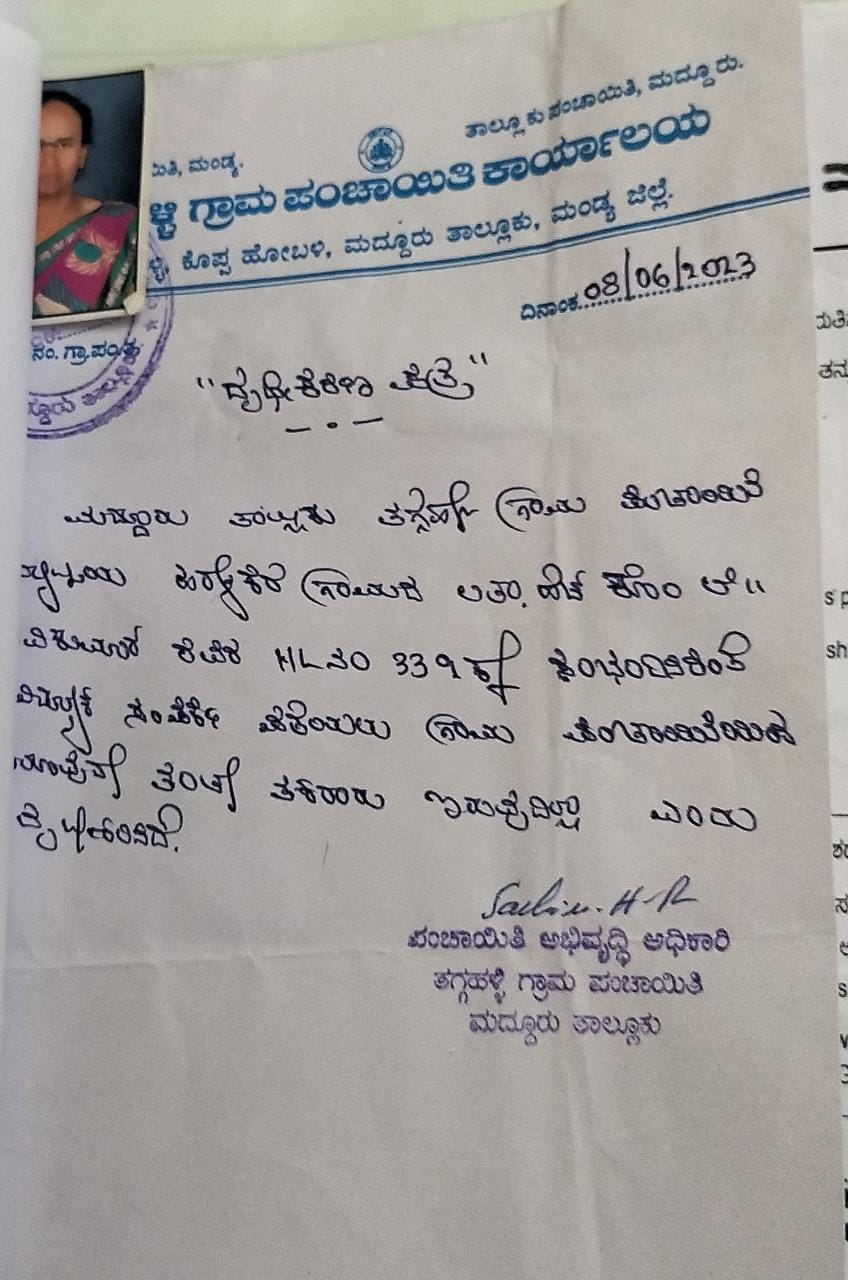 ತಾಲ್ಲೂಕು ಪಂಚಾಯಿತಿ, ಮದ್ದೂರು.
ಯಿತಿ, ಮಂಡ್ಯ.
ಳ್ಳಿ ಗ್ರಾಮ ಪಂಚಾಯಿತಿ ಕಾರ್ಯಾಲಯ
ಕೊಪ್ಪ ಹೋಬಳಿ, ಮದ್ದೂರು ತಾಲ್ಲೂಕು, ಮಂಡ್ಯ ಜಿಲ್ಲೆ.
ದಿನಾಂಕ 08/06/2023
ನಂ. ಗ್ರಾ.ಪಂ
"ದೃಢೀಕರಣ ಪತ್ರ"
ಮದ್ದೂರು ತಾಲ್ಲೂಕು ತಗ್ಗಹಳ್ಳಿ ಗ್ರಾಮ ಪಂಚಾಯಿತಿ
ಗ್ರಾಮದ ಲತಾ. ಹೆಚ್ ಕೋಂ
HL ನಂ 339 ಕ್ಕೆ ಸಂಬಂಧಿಸಿದಂತೆ
ವಿದ್ಯುತ್ ಸಂಪರ್ಕ ಪಡೆಯಲು ಗ್ರಾಮ ಪಂಚಾಯಿತಿಯಿಂದ
ಯಾವುದೇ ತಂಟೆ ತಕರಾರು ಇರುವುದಿಲ್ಲಾ ಎಂದು
ದೃಢೀಕರಿಸಿದೆ.
Sachin. H-R
ಪಂಚಾಯಿತಿ ಅಭಿವೃದ್ಧಿ ಅಧಿಕಾರಿ
ತಗ್ಗಹಳ್ಳಿ ಗ್ರಾಮ ಪಂಚಾಯಿತಿ
ಮದ್ದೂರು ತಾಲ್ಲೂಕು